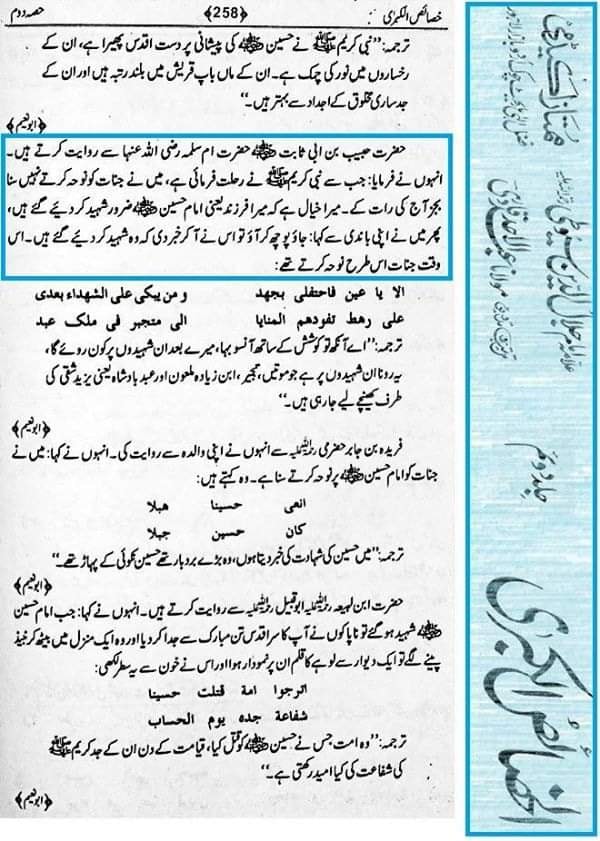 خصائص الکبریٰ
﴿258﴾
حصہ دوم
ترجمہ: ”نبی کریم ﷺ نے حسین ؓ کی پیشانی پر دست اقدس پھیرا ہے، ان کے
رخساروں میں نور کی چمک ہے۔ ان کے ماں باپ قریش میں بلند رتبہ ہیں اور ان کے
جد ساری مخلوق کے اجداد سے بہتر ہیں۔“
﴿ابو نعیم﴾
حضرت حبیب بن ابی ثابت ؓ حضرت ام سلمہ رضی اللہ عنہا سے روایت کرتے ہیں۔
انہوں نے فرمایا: جب سے نبی کریم ﷺ نے رحلت فرمائی ہے، میں نے جنات کو نوحہ کرتے نہیں سنا
بجز آج کی رات کے۔ میرا خیال ہے کہ میرا فرزند یعنی امام حسین ؓ ضرور شہید کر دیئے گئے ہیں،
پھر میں نے اپنی باندی سے کہا: جاؤ پوچھ کر آؤ تو اس نے آ کر خبر دی کہ وہ شہید کر دیئے گئے ہیں۔ اس
وقت جنات اس طرح نوحہ کرتے تھے:
الا یا عین فاحتفلی بجھد و من یبکی علی الشھداء بعدی
علی رھط تقودھم المنایا الی متجبر فی ملک عبد
ترجمہ: ”اے آنکھ تو کوشش کے ساتھ آنسو بہا، میرے بعد ان شہیدوں پر کون روئے گا،
یہ رونا ان شہیدوں پر ہے جو موتیں، مجبر، ابن زیادہ ملعون اور عبد بادشاہ یعنی یزید شقی کی
طرف کھینچے لیے جا رہی ہیں۔“
﴿ابو نعیم﴾
فریدہ بن جابر حضری رحمۃ اللہ علیہ سے انہوں نے اپنی والدہ سے روایت کی۔ انہوں نے کہا: میں نے
جنات کو امام حسین ؓ پر نوحہ کرتے سنا ہے۔ وہ کہتے ہیں:
انعی حسینا ھبلا
کان حسین جبلا
ترجمہ: ”میں حسین کی شہادت کی خبر دیتا ہوں، وہ بڑے بردبار تھے حسین نکوئی کے پہاڑ تھے۔“
﴿ابو نعیم﴾
حضرت ابن لہیعہ رحمۃ اللہ علیہ ابو قبیل رحمۃ اللہ علیہ سے روایت کرتے ہیں۔ انہوں نے کہا: جب امام حسین
ؓ شہید ہو گئے تو ناپاکوں نے آپ کا سر اقدس تن مبارک سے جدا کر دیا اور وہ ایک منزل میں بیٹھ کر نبیذ
پینے لگے تو ایک دیوار سے لوہے کا قلم ان پر نمودار ہوا اور اس نے خون سے یہ سطر لکھی:
اترجوا امة قتلت حسینا
شفاعة جدہ یوم الحساب
ترجمہ: ”وہ امت جس نے حسین ؓ کو قتل کیا، قیامت کے دن ان کے جد کریم ﷺ
کی شفاعت کی کیا امید رکھتی ہے۔“
﴿ابو نعیم﴾
الخصائص الکبریٰ
جلد دوم
علامہ امام جلال الدین سیوطی
مولانا عبد الاحد قادری
ممتاز اکیڈمی